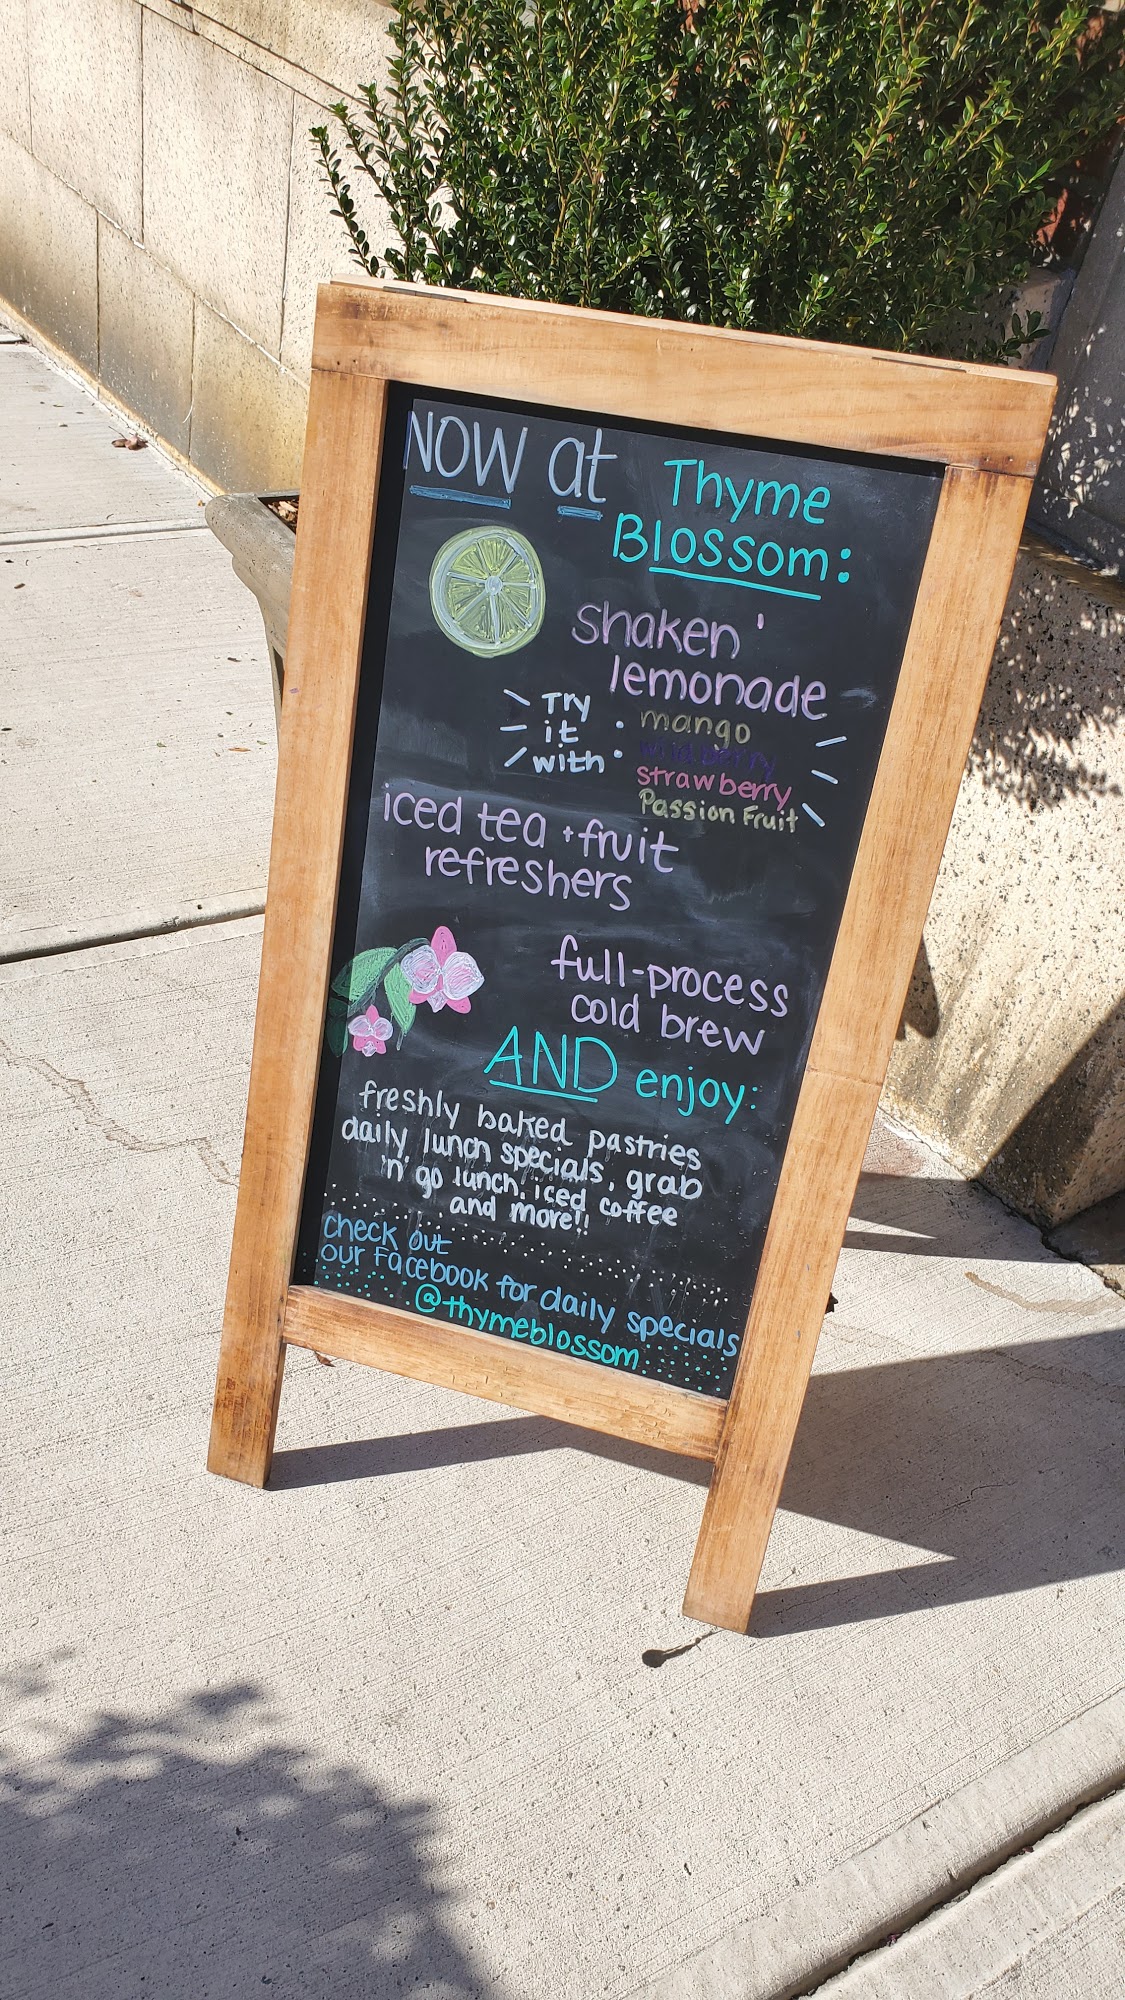 NOW at Thyme
Blossom:
shaken'
lemonade
Try
it
with
mango
wild berry
strawberry
Passion Fruit
iced tea + fruit
refreshers
full-process
cold brew
AND enjoy:
freshly baked pastries
daily lunch specials, grab
'n' go lunch, iced coffee
and more!!
check out
our Facebook for daily specials
@thymeblossom